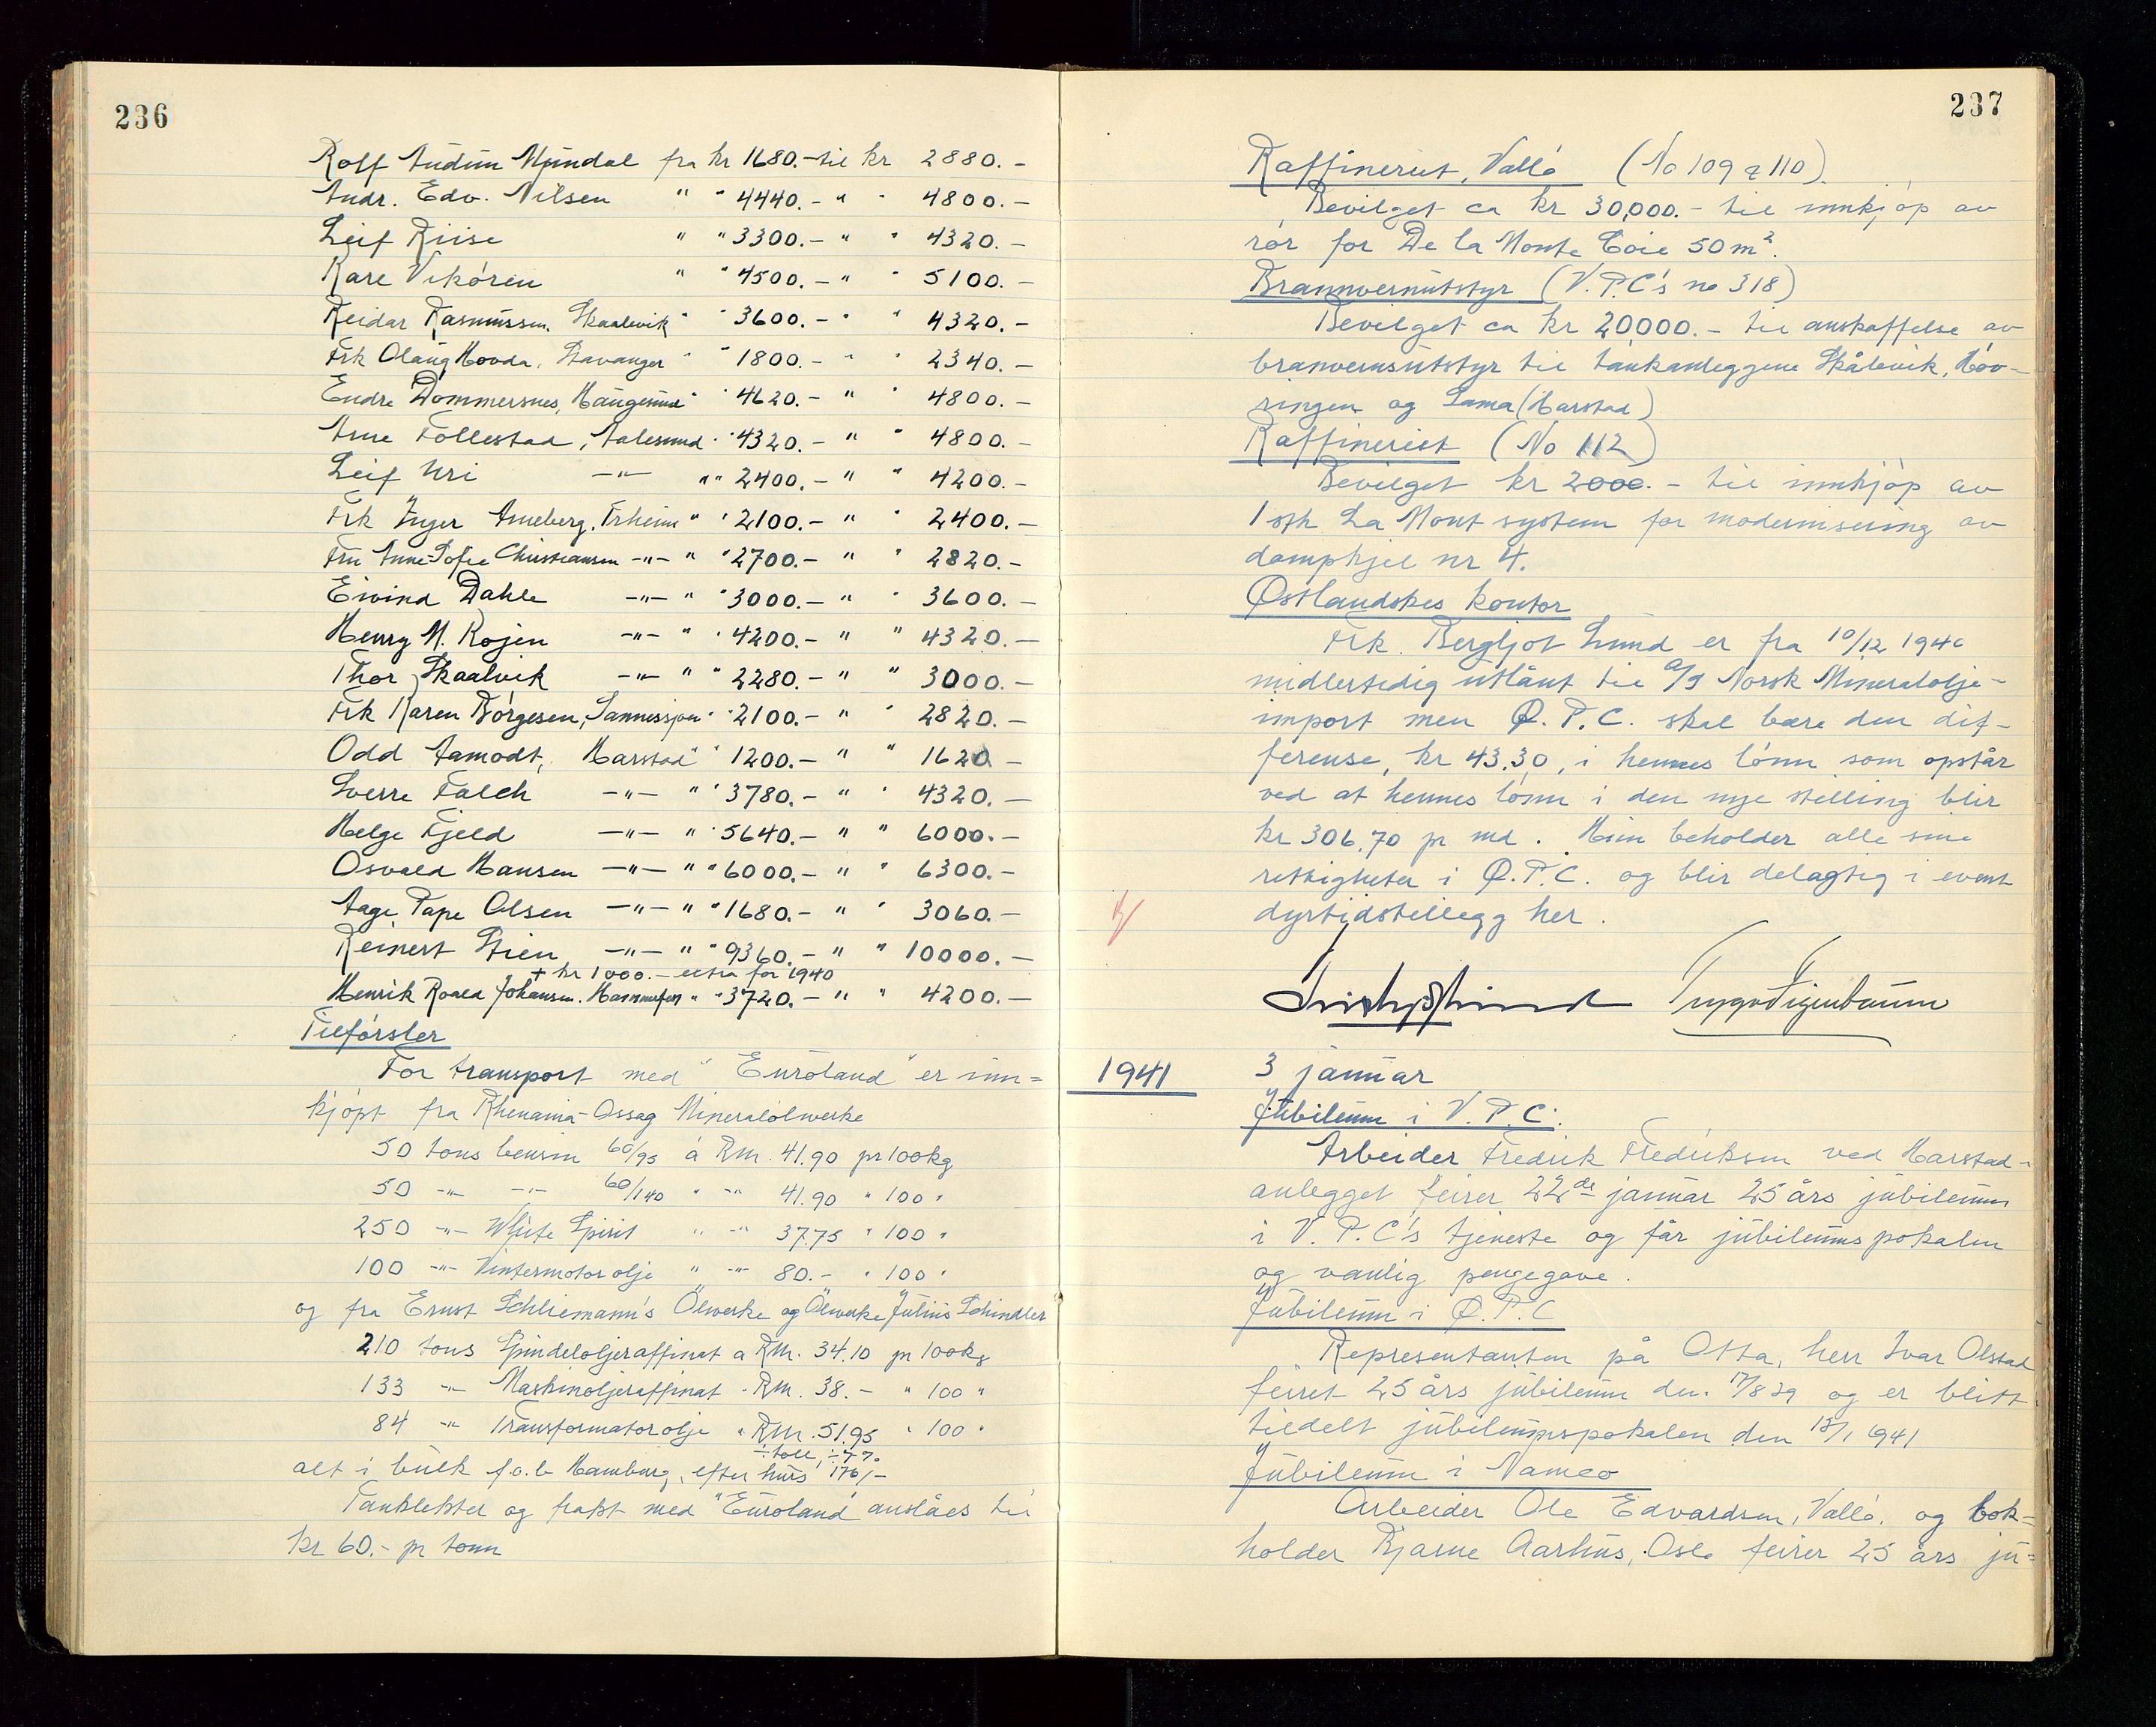 236
Rolf Audun Mundal fra kr 1680.- til kr 2880.-
Andr. Edv. Nilsen " " 4440.- " " 4800.-
Leif Riise " " 3300.- " " 4320.-
Kare Vikören " " 4500.- " " 5100.-
Reidar Rasmussen, Skaalevik " " 3600.- " " 4320.-
Frk Olaug Hovda, Stavanger " " 1800.- " " 2340.-
Endre Dommersnes, Haugesund " " 4620.- " " 4800.-
Arne Follestad, Aalesund " " 4320.- " " 4800.-
Leif Uri -"- " " 2400.- " " 4200.-
Frk Inger Arneberg, Trheim " " 2100.- " " 2400.-
Fru Anne-Sofie Christiansen -"- " " 2700.- " " 2820.-
Eivind Dahle -"- " " 3000.- " " 3600.-
Henry M. Rojen -"- " " 4200.- " " 4320.-
Thor Skaalvik -"- " " 2280.- " " 3000.-
Frk Karen Börgesen, Sannessjøen " " 2100.- " " 2820.-
Odd Aamodt, Harstad " " 1200.- " " 1620.-
Sverre Falch -"- " " 3780.- " " 4320.-
Helge Fjeld -"- " " 5640.- " " 6000.-
Osvald Hansen -"- " " 6000.- " " 6300.-
Aage Pape Olsen -"- " " 1680.- " " 3060.-
Reinert Stien -"- " " 9360.- " " 10000.-
+ kr 1000.- extra for 1940
Henrik Roald Johansen, Hammerfest " " 3720.- " " 4200.-
Tilförsler
For transport med "Euroland" er inn=
kjöpt fra Rhenania-Ossag Mineralölwerke
50 tons bensin 60/95 á RM. 41.90 pr 100kg
50 -"- -"- 60/140 " -"- 41.90 " 100 "
250 -"- White Spirit " -"- 37.75 " 100 "
100 -"- Vintermotorolje " -"- 80.- " 100 "
og fra Ernst Schliemann's Ölwerke og Ölwerke Julius Schindler
210 tons Spindeloljeraffinat a RM. 34.10 pr 100kg
133 -"- Maskinoljeraffinat " RM. 38.- " 100 "
84 -"- Transformatorolje " RM. 51.95 " 100 "
alt i bulk f.o.b Hamburg,
Tanklekter og frakt med "Euroland" anslåes til
kr 60.- pr tonn
237
Raffineriet, Vallö (No 109 & 110)
Bevilget ca kr 30,000.- til innkjöp av
rör for De la Monte 50 m².
Brannvernutstyr (V.P.C's no 318)
Bevilget ca kr 20000.- til anskaffelse av
branvernsutstyr til tankanleggene Skålevik, Höv-
ringen og Sama (Harstad)
Raffineriet (No 112)
Bevilget kr 2000.- til innkjöp av
1 stk La Mont system for modernisering av
dampkjel nr 4.
Østlandskes kontor
Frk. Bergljot Lund er fra 10/12 1940
midlertidig utlånt til A/S Norsk Mineralolje-
import men Ø.P.C. skal bære den dif-
ferense, kr 43,30, i hennes lönn som opstår
ved at hennes lönn i den nye stilling blir
kr 306,70 pr md. Hun beholder alle sine
rettigheter i Ø.P.C. og blir delagtig i event
dyrtidstillegg her.
1941 3 januar
Jubileum i V.P.C.
Arbeider Fredrik Fredriksen ved Harstad-
anlegget feirer 22de januar 25 års jubileum
i V.P.C's tjeneste og får jubileums pokalen
og vanlig pengegave.
Jubileum i Ø.P.C
Representanten på Otta, herr Ivar Olstad
feiret 25 års jubileum den 17/8 39 og er blitt
tildelt jubileumspokalen den 15/1 1941
Jubileum i Namco
Arbeider Ole Edvardsen, Vallö, og bok=
holder Bjarne Aarhus, Oslo feirer 25 års ju=